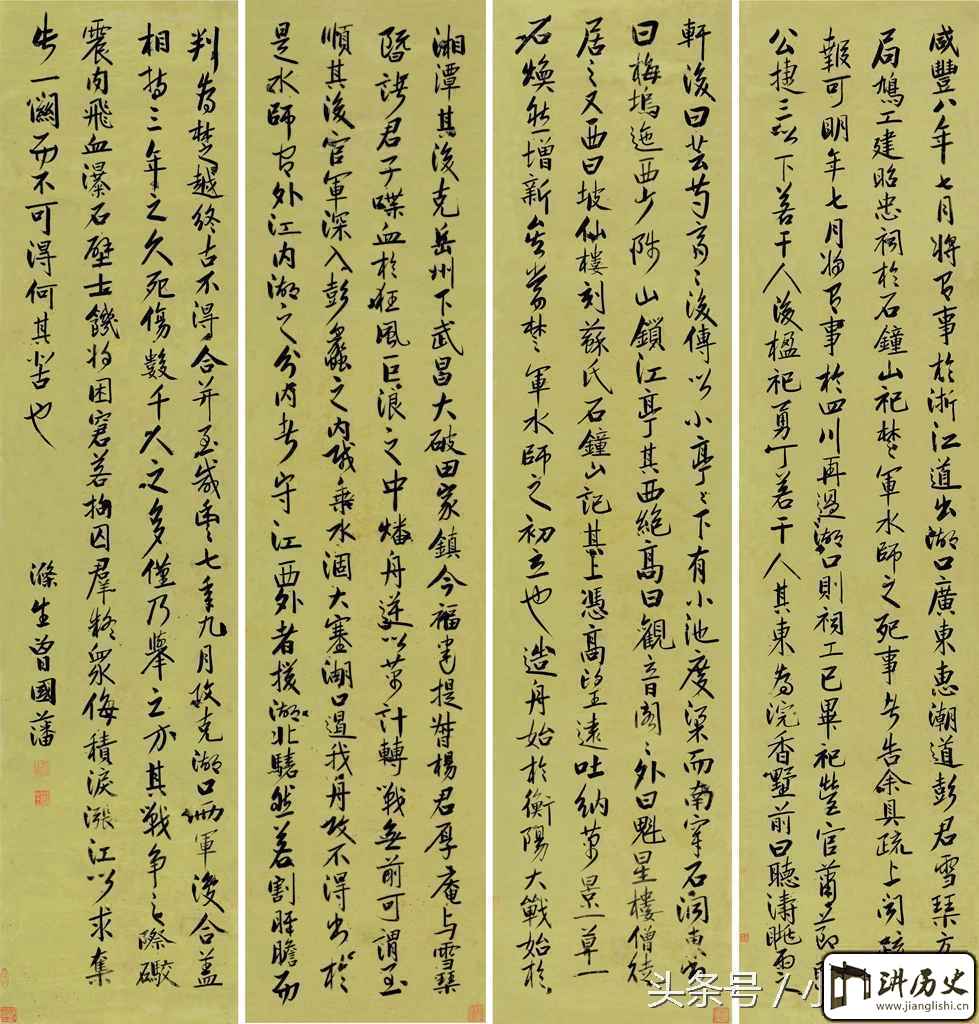 咸豐八年七月將有事於浙江道出湖口廣東惠潮道彭君雪琴方
局鳩工建昭忠祠於石鐘山祀楚軍水師之死事者告余具疏上聞
報可明年七月將有事於四川再過湖口則祠工已畢祀營官蕭
公捷三以下若干人後楹祀勇丁若干人其東為浣香墅前曰聽濤眺雨
軒後曰芸芍齋之後傅以小亭亭下有小池度梁而南穿石洞
曰梅塢迤西少陟山鎖江亭其西絕高曰觀音閣閣外曰魁星樓僧徒
居之又西曰坡仙樓刻蘇氏石鐘山記其上憑高望遠吐納萬景一草一
石煥然增新矣當楚軍水師之初立也造舟始於衡陽大戰始於
湘潭其後克岳州下武昌大破田家鎮今福建提督楊君厚庵与雪琴
暨諸君子喋血於狂風巨浪之中燔舟逆以萬計轉戰無前可謂至
順其後官軍深入彭蠡之內賊乘水涸大塞湖口遏我舟攻不得出於
是水師有外江內湖之分內者守江西外者援湖北驍然若割肝膽而
判為楚越終古不得合并至咸豐七年九月攻克湖口兩軍復合蓋
相持三年之久死傷數千人之多僅乃舉之方其戰爭之際礮
震肉飛血瀑石壁士饑將困窘若拘囚群疑眾侮積淚漲江以求奪
此一關而不可得何其苦也
滌生曾國藩
头条号/小
讲历史
www.jianglishi.cn